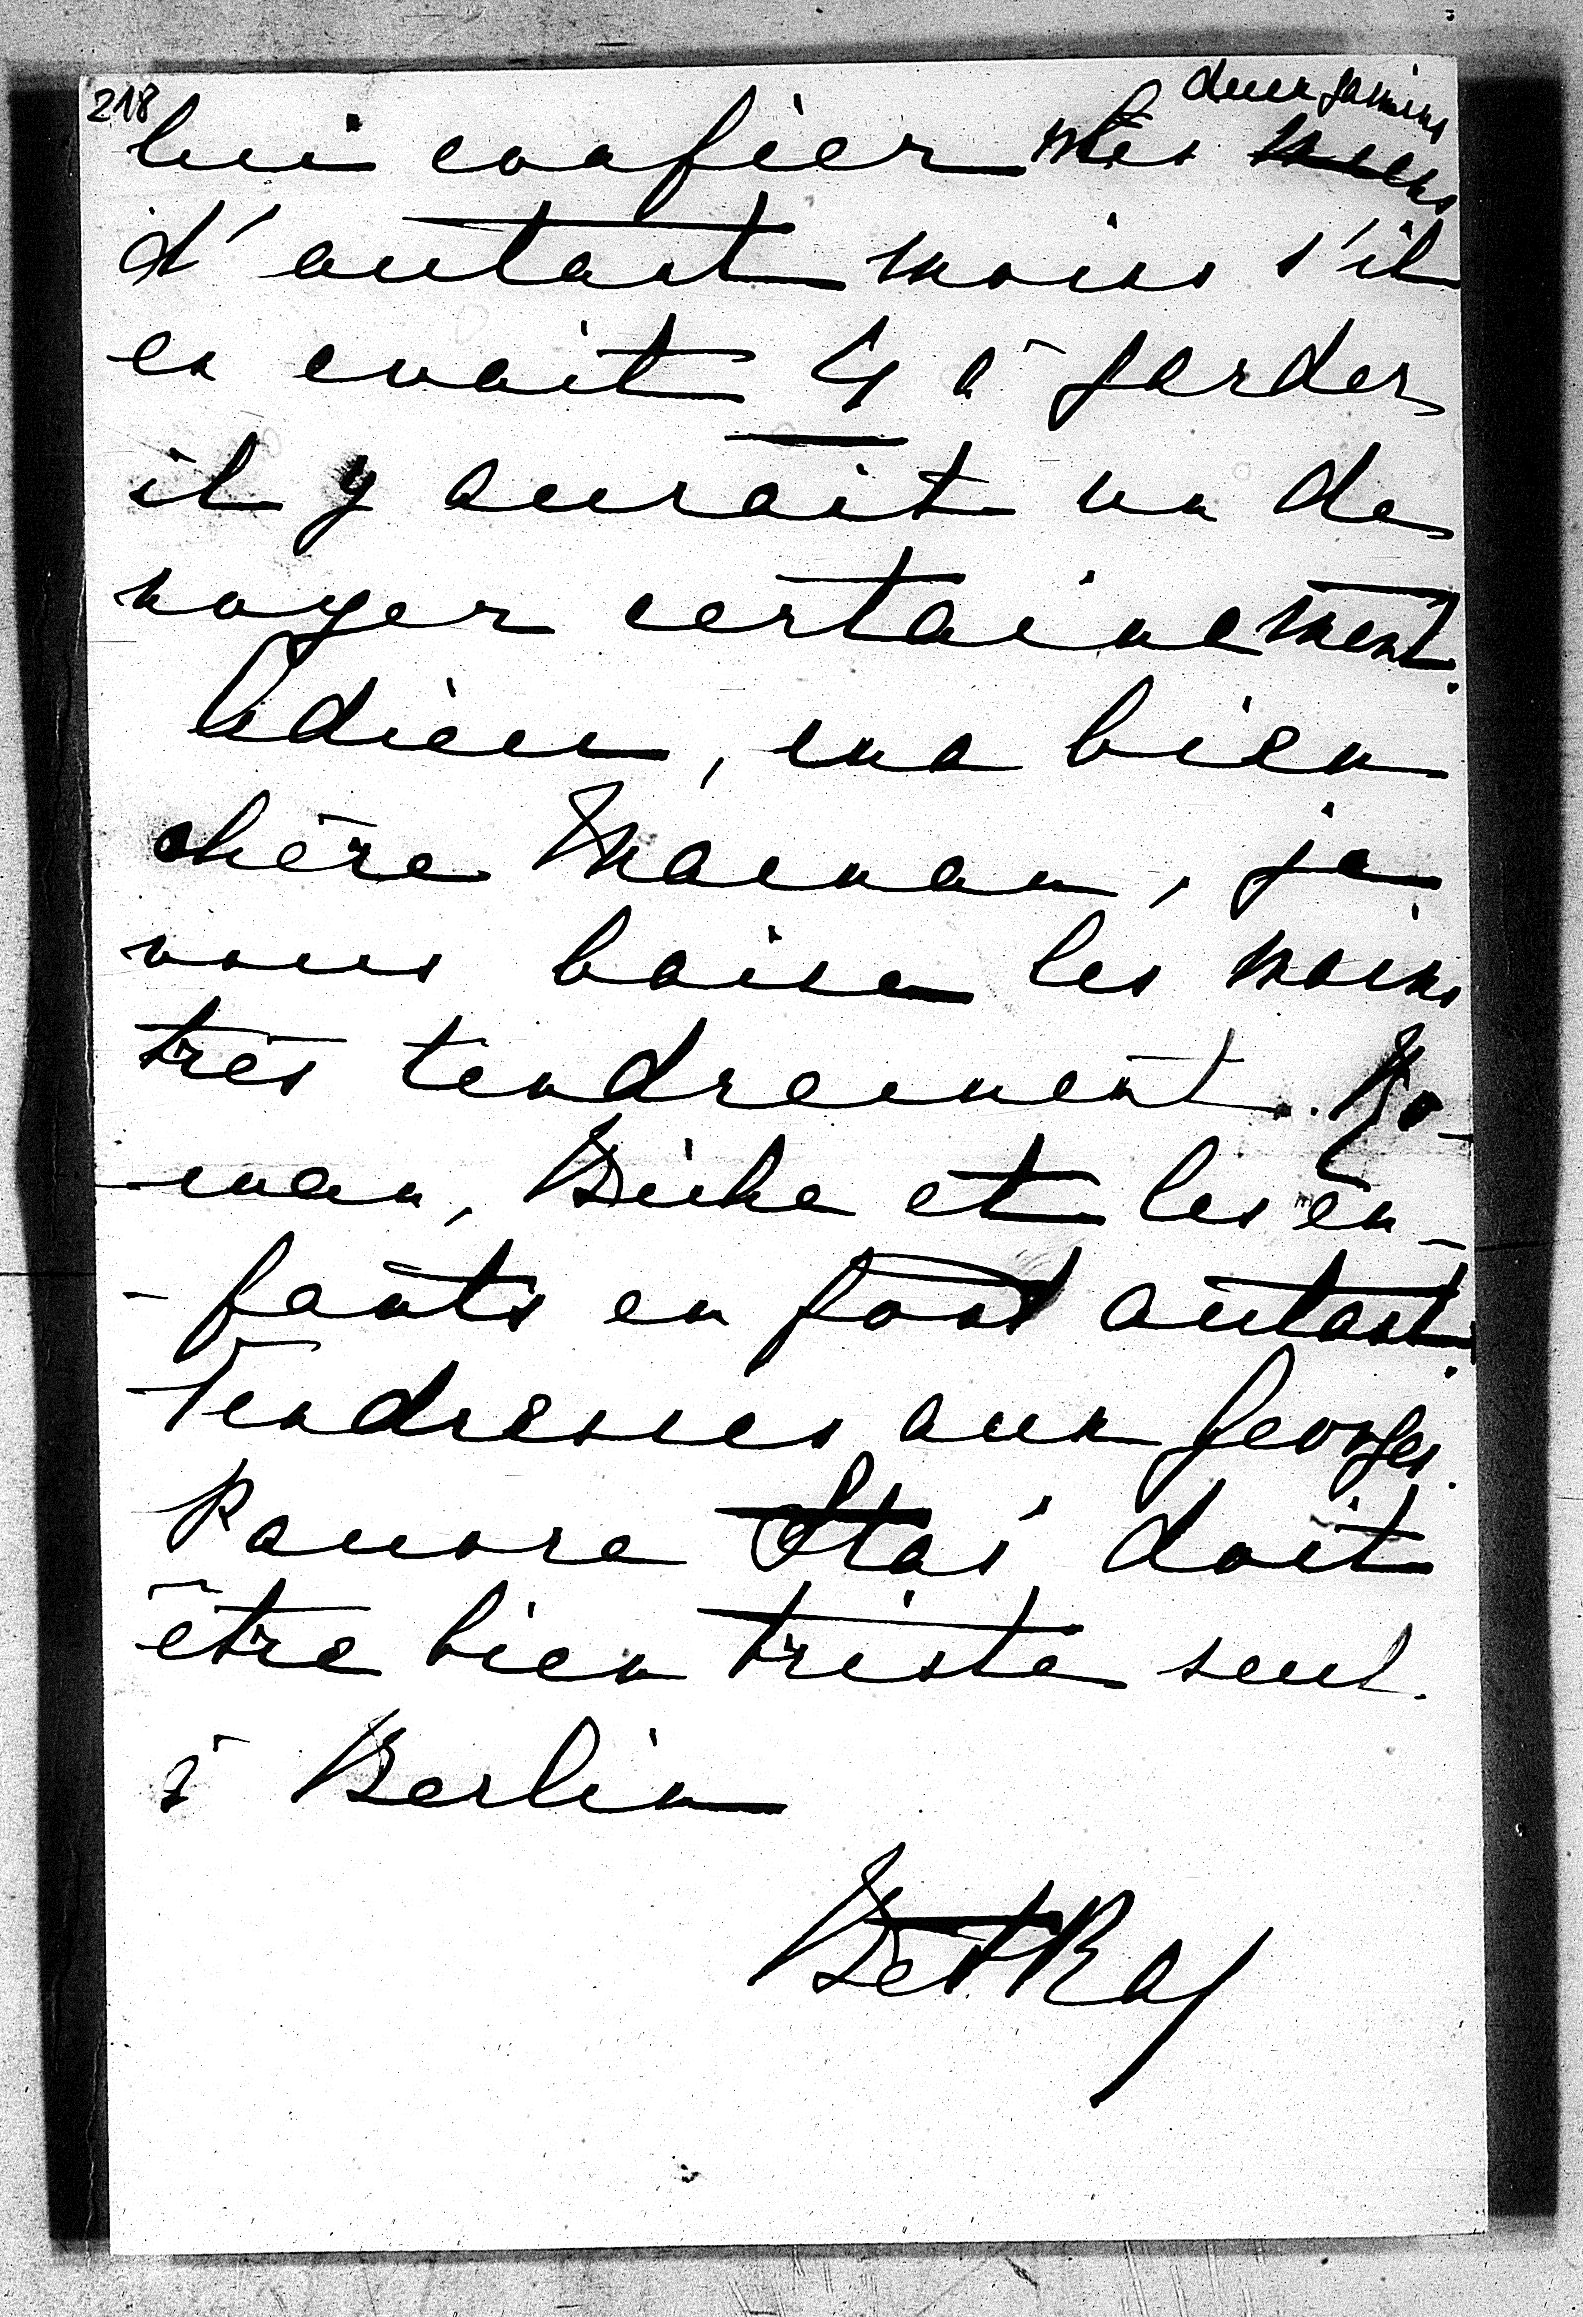 218
deux gamins
lui confier mes
d'autant moins s'il
en avait 4 à garder
il y aurait un de
noyer certainement.
Adieu, ma bien
chère Maman, je
vous baise les mains
très tendrement. Ro-
-man, Biche et les en-
-fants en font autant.
Tendresses aux Georges.
Pauvre Staś doit
être bien triste seul
à Berlin
BetKa